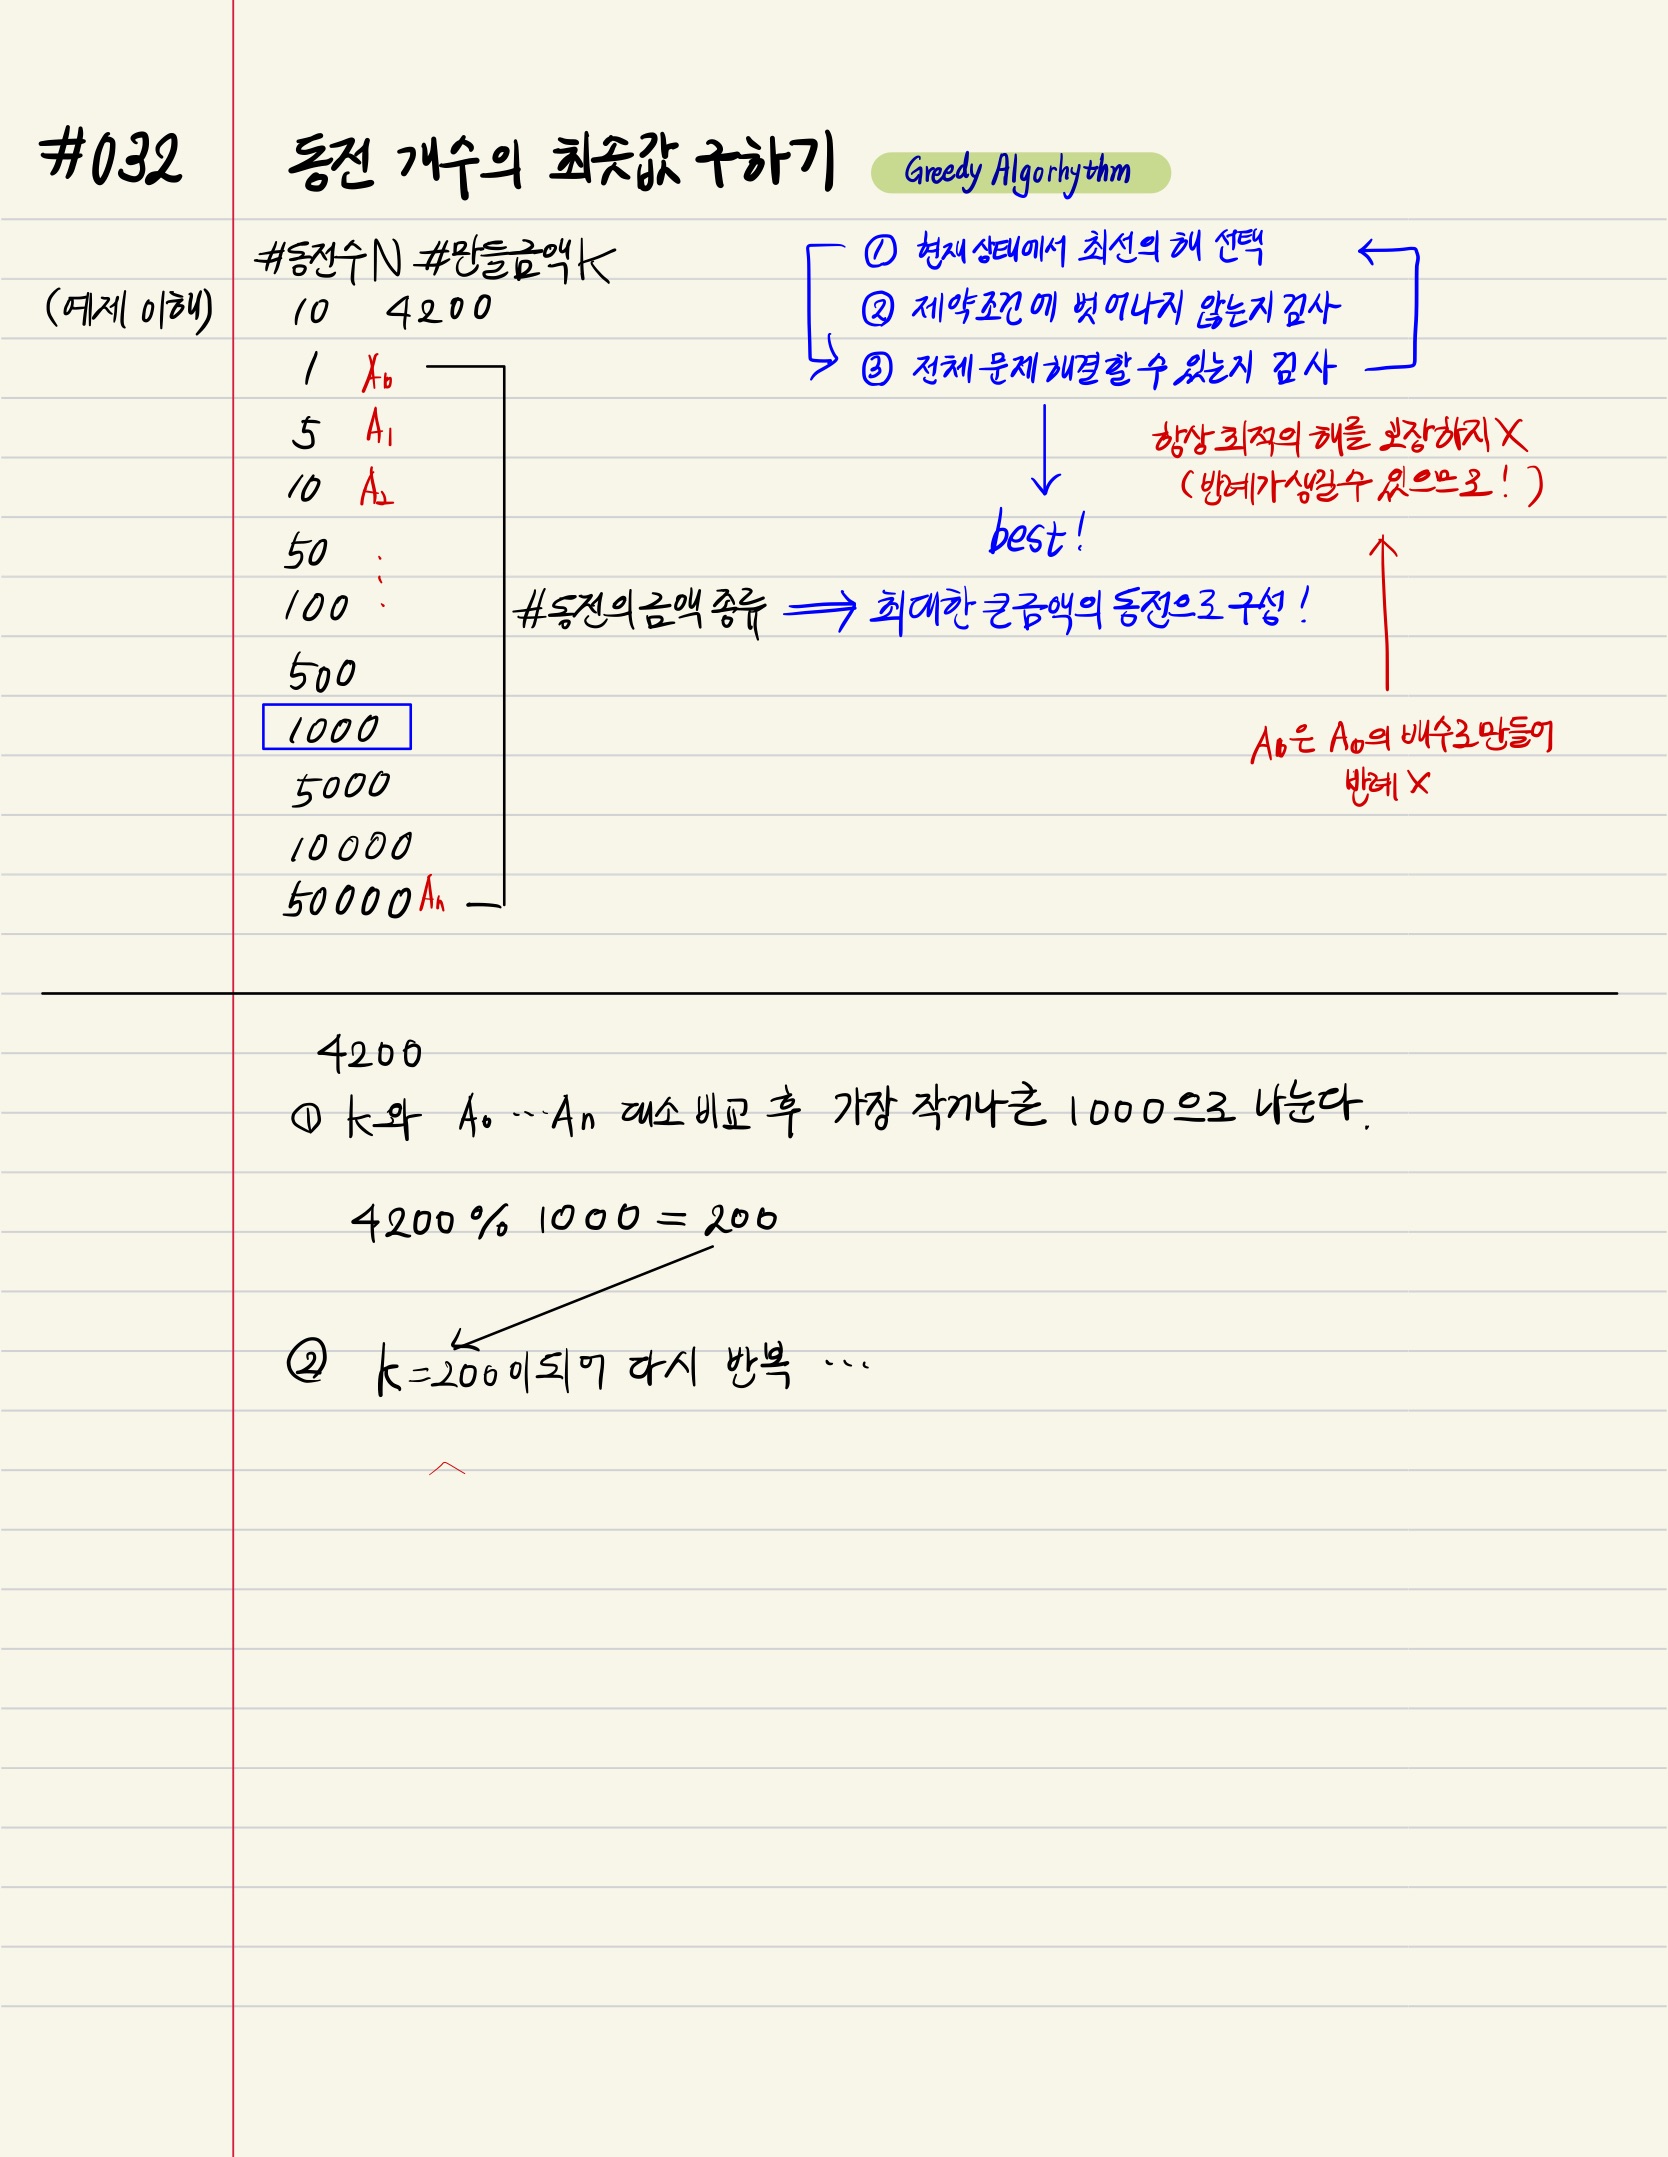 #032 동전 개수의 최솟값 구하기 Greedy Algorhythm
#동전수N #만들금액K
(예제 이해) 10 4200
1 A₀
5 A₁
10 A₂
50
100
500
1000
5000
10000
50000 Aₙ
#동전의 금액 종류 ⇒ 최대한 큰 금액의 동전으로 구성!
① 현재 상태에서 최선의 해 선택
② 제약조건에 벗어나지 않는지 검사
③ 전체 문제 해결할 수 있는지 검사
best!
항상 최적의 해를 보장하지 X
(반례가 생길 수 있으므로!)
A₀은 A₀의 배수로 만들어
반례 X
4200
① K와 A₀ ··· Aₙ 대소 비교 후 가장 작거나 큰 1000으로 나눈다.
4200 % 1000 = 200
② K=200이 되어 다시 반복 ···